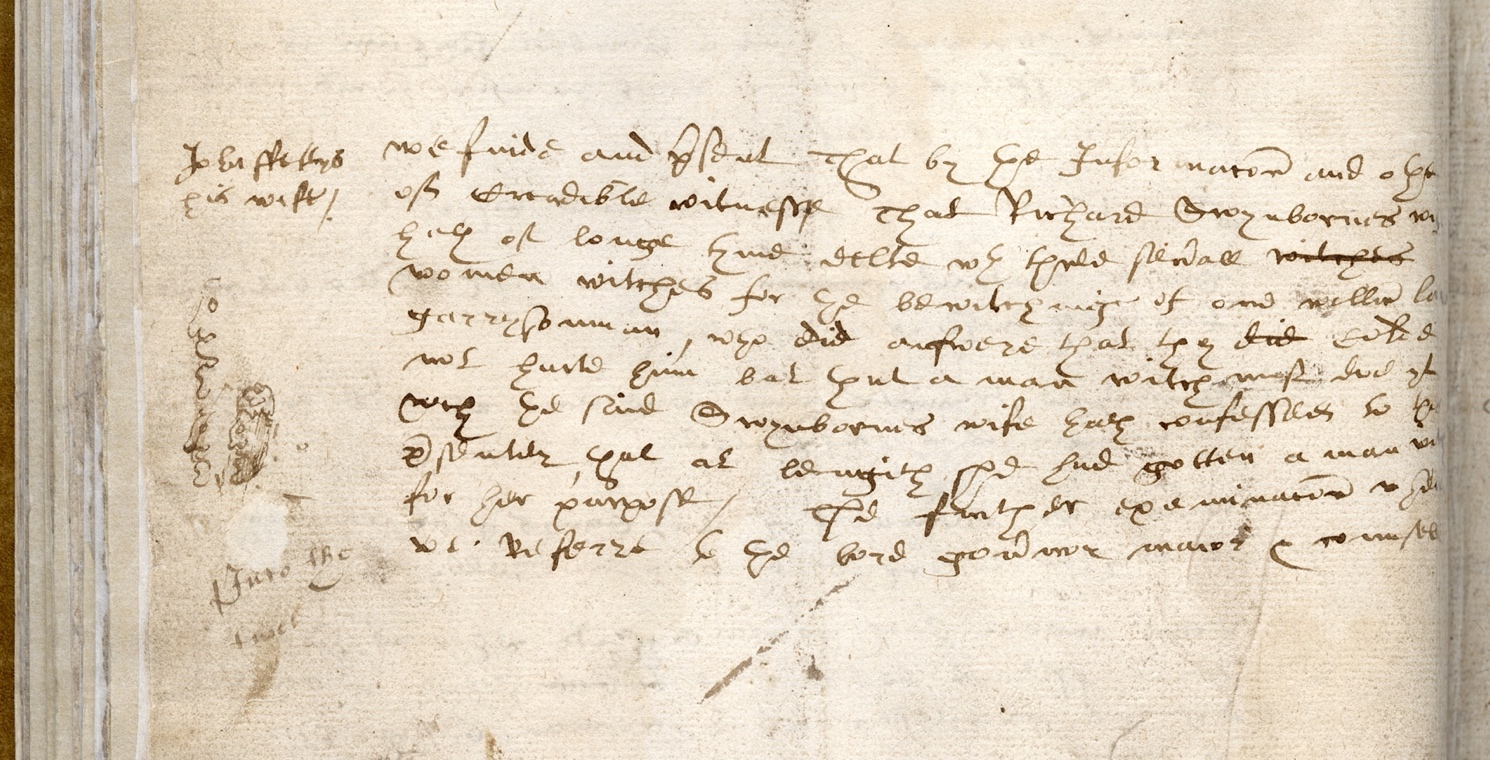 John ffettys
his wife /
we finde and p̄sent That by the Informacōn and othe
of Creadible witnesse That Richard Swynbornes wi
hath of longe tyme delte wth three seūall witches
women witches for the bewitching of one willm̄
garrysonman, who did answere that they did Colde
not hurte him but that a man witch must doe yt
wch the said Swynbornes wife hath confessed to
p̄sently that at lengith she had gotten a man wi
for her purpose / The further exeminacōn wher
we Referre to the lord goūnor maior & counsel
Unto the